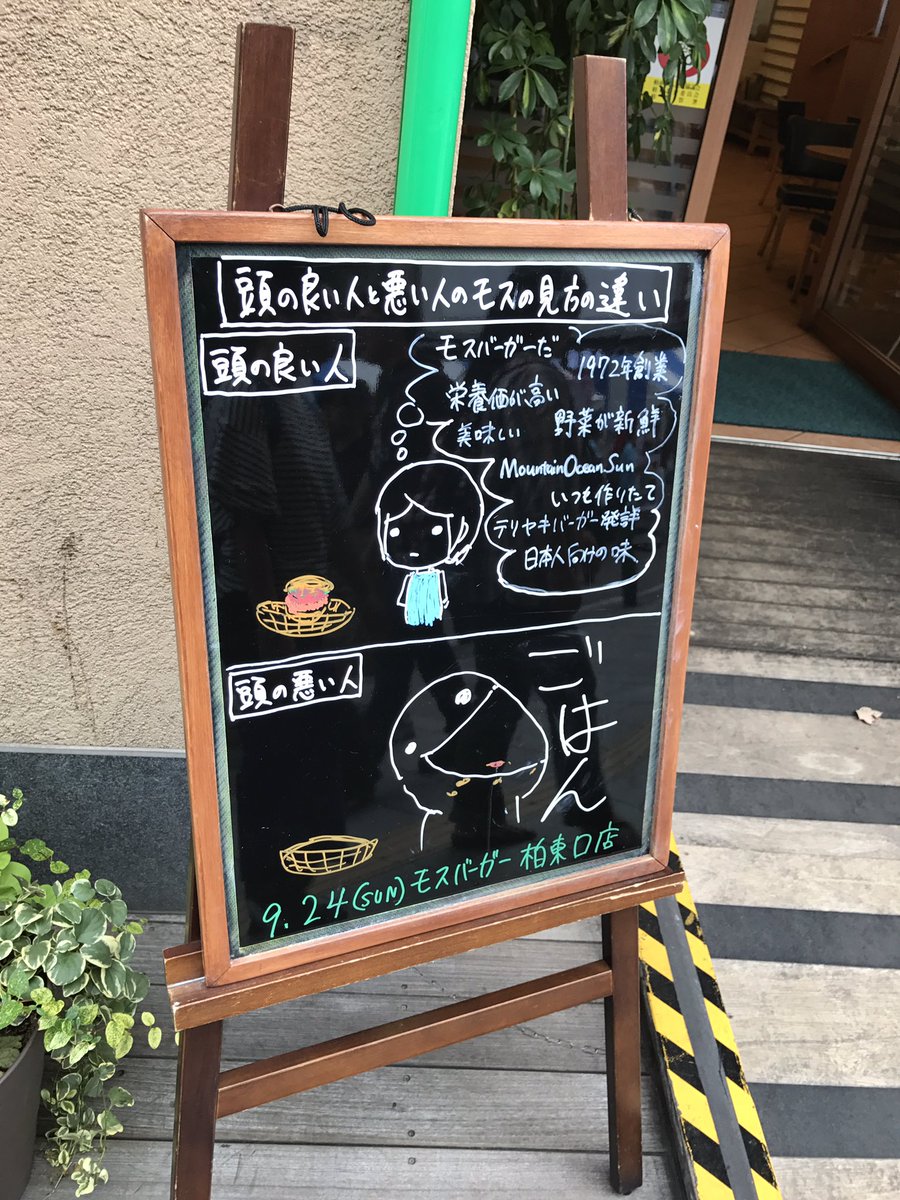 頭の良い人と悪い人のモスの見方の違い
頭の良い人
モスバーガーだ
1972年創業
栄養価が高い
美味しい 野菜が新鮮
MountainOceanSun
いつも作りたて
テリヤキバーガー発祥
日本人向けの味
頭の悪い人
ごはん
9.24(SUN)モスバーガー 柏東口店